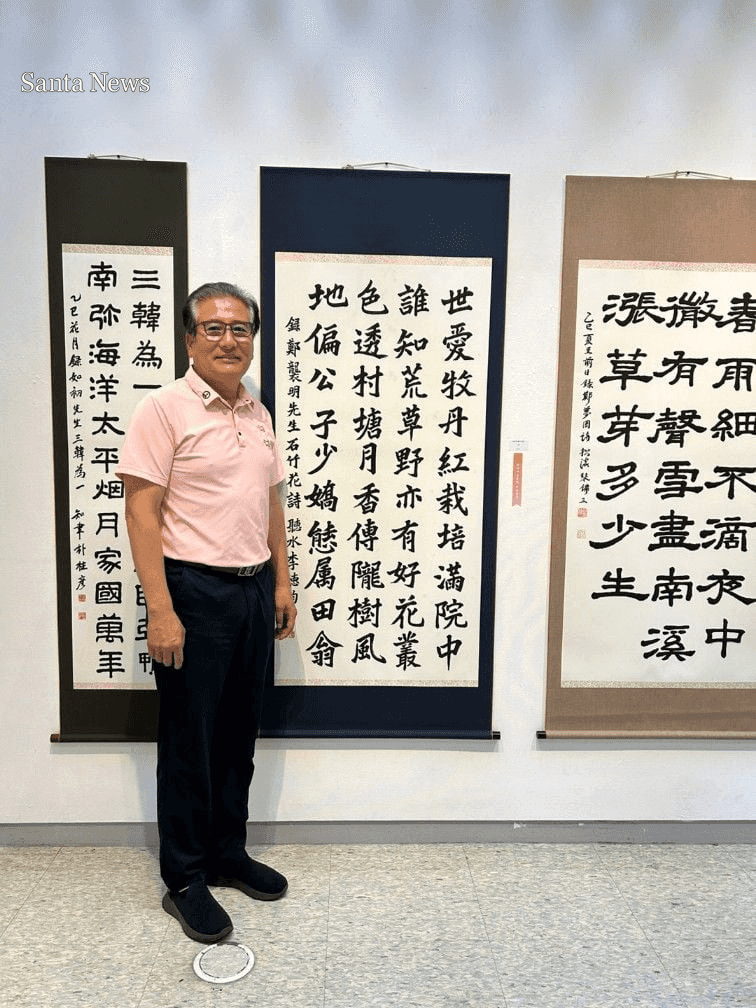 Santa News
三韓為一
南弥海洋太平烟月家國萬年
乙巳花月錄如初先生三韓為一
世愛牧丹紅栽培滿院中
誰知荒草野亦有好花叢
色透村塘月香傳隴樹風
地偏公子少嬌態属田翁
錄鄭襲明先生石竹花詩 聽水李德
春雨細不滴夜中
微有聲雪盡南溪
漲草芽多少生
乙巳夏至前日錄鄭夢周詩